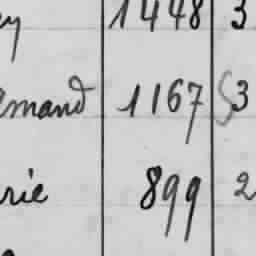 ey 1448 3
emand 1167 3
rie 899 2